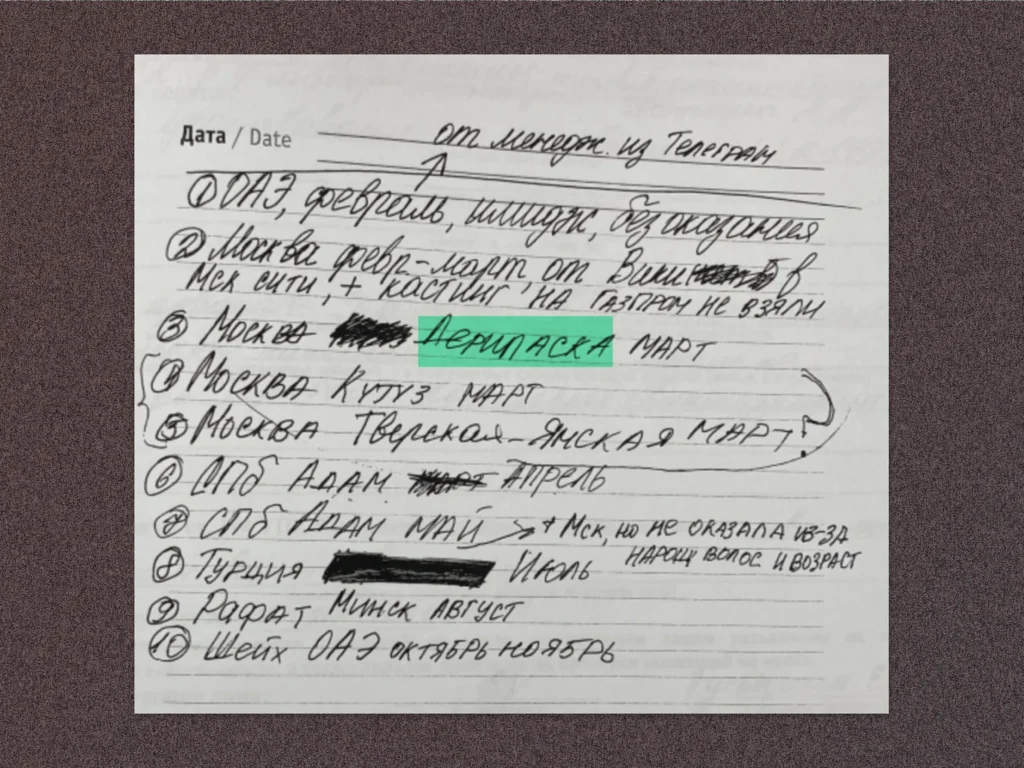 Дата / Date
от менедж. из Телеграм
① ОАЭ, февраль, имидж, без оказания
② Москва февр-март, от Вики в
Мск сити, + кастинг на Газпром не взяли
③ Москва Дерипаска март
④ Москва Кутуз март
⑤ Москва Тверская-Ямская март ?
⑥ СПб Адам Апрель
⑦ СПб Адам май → + Мск, но не оказала из-за
нарощ волос и возраст
⑧ Турция Июль
⑨ Рафат Минск август
⑩ Шейх ОАЭ октябрь ноябрь